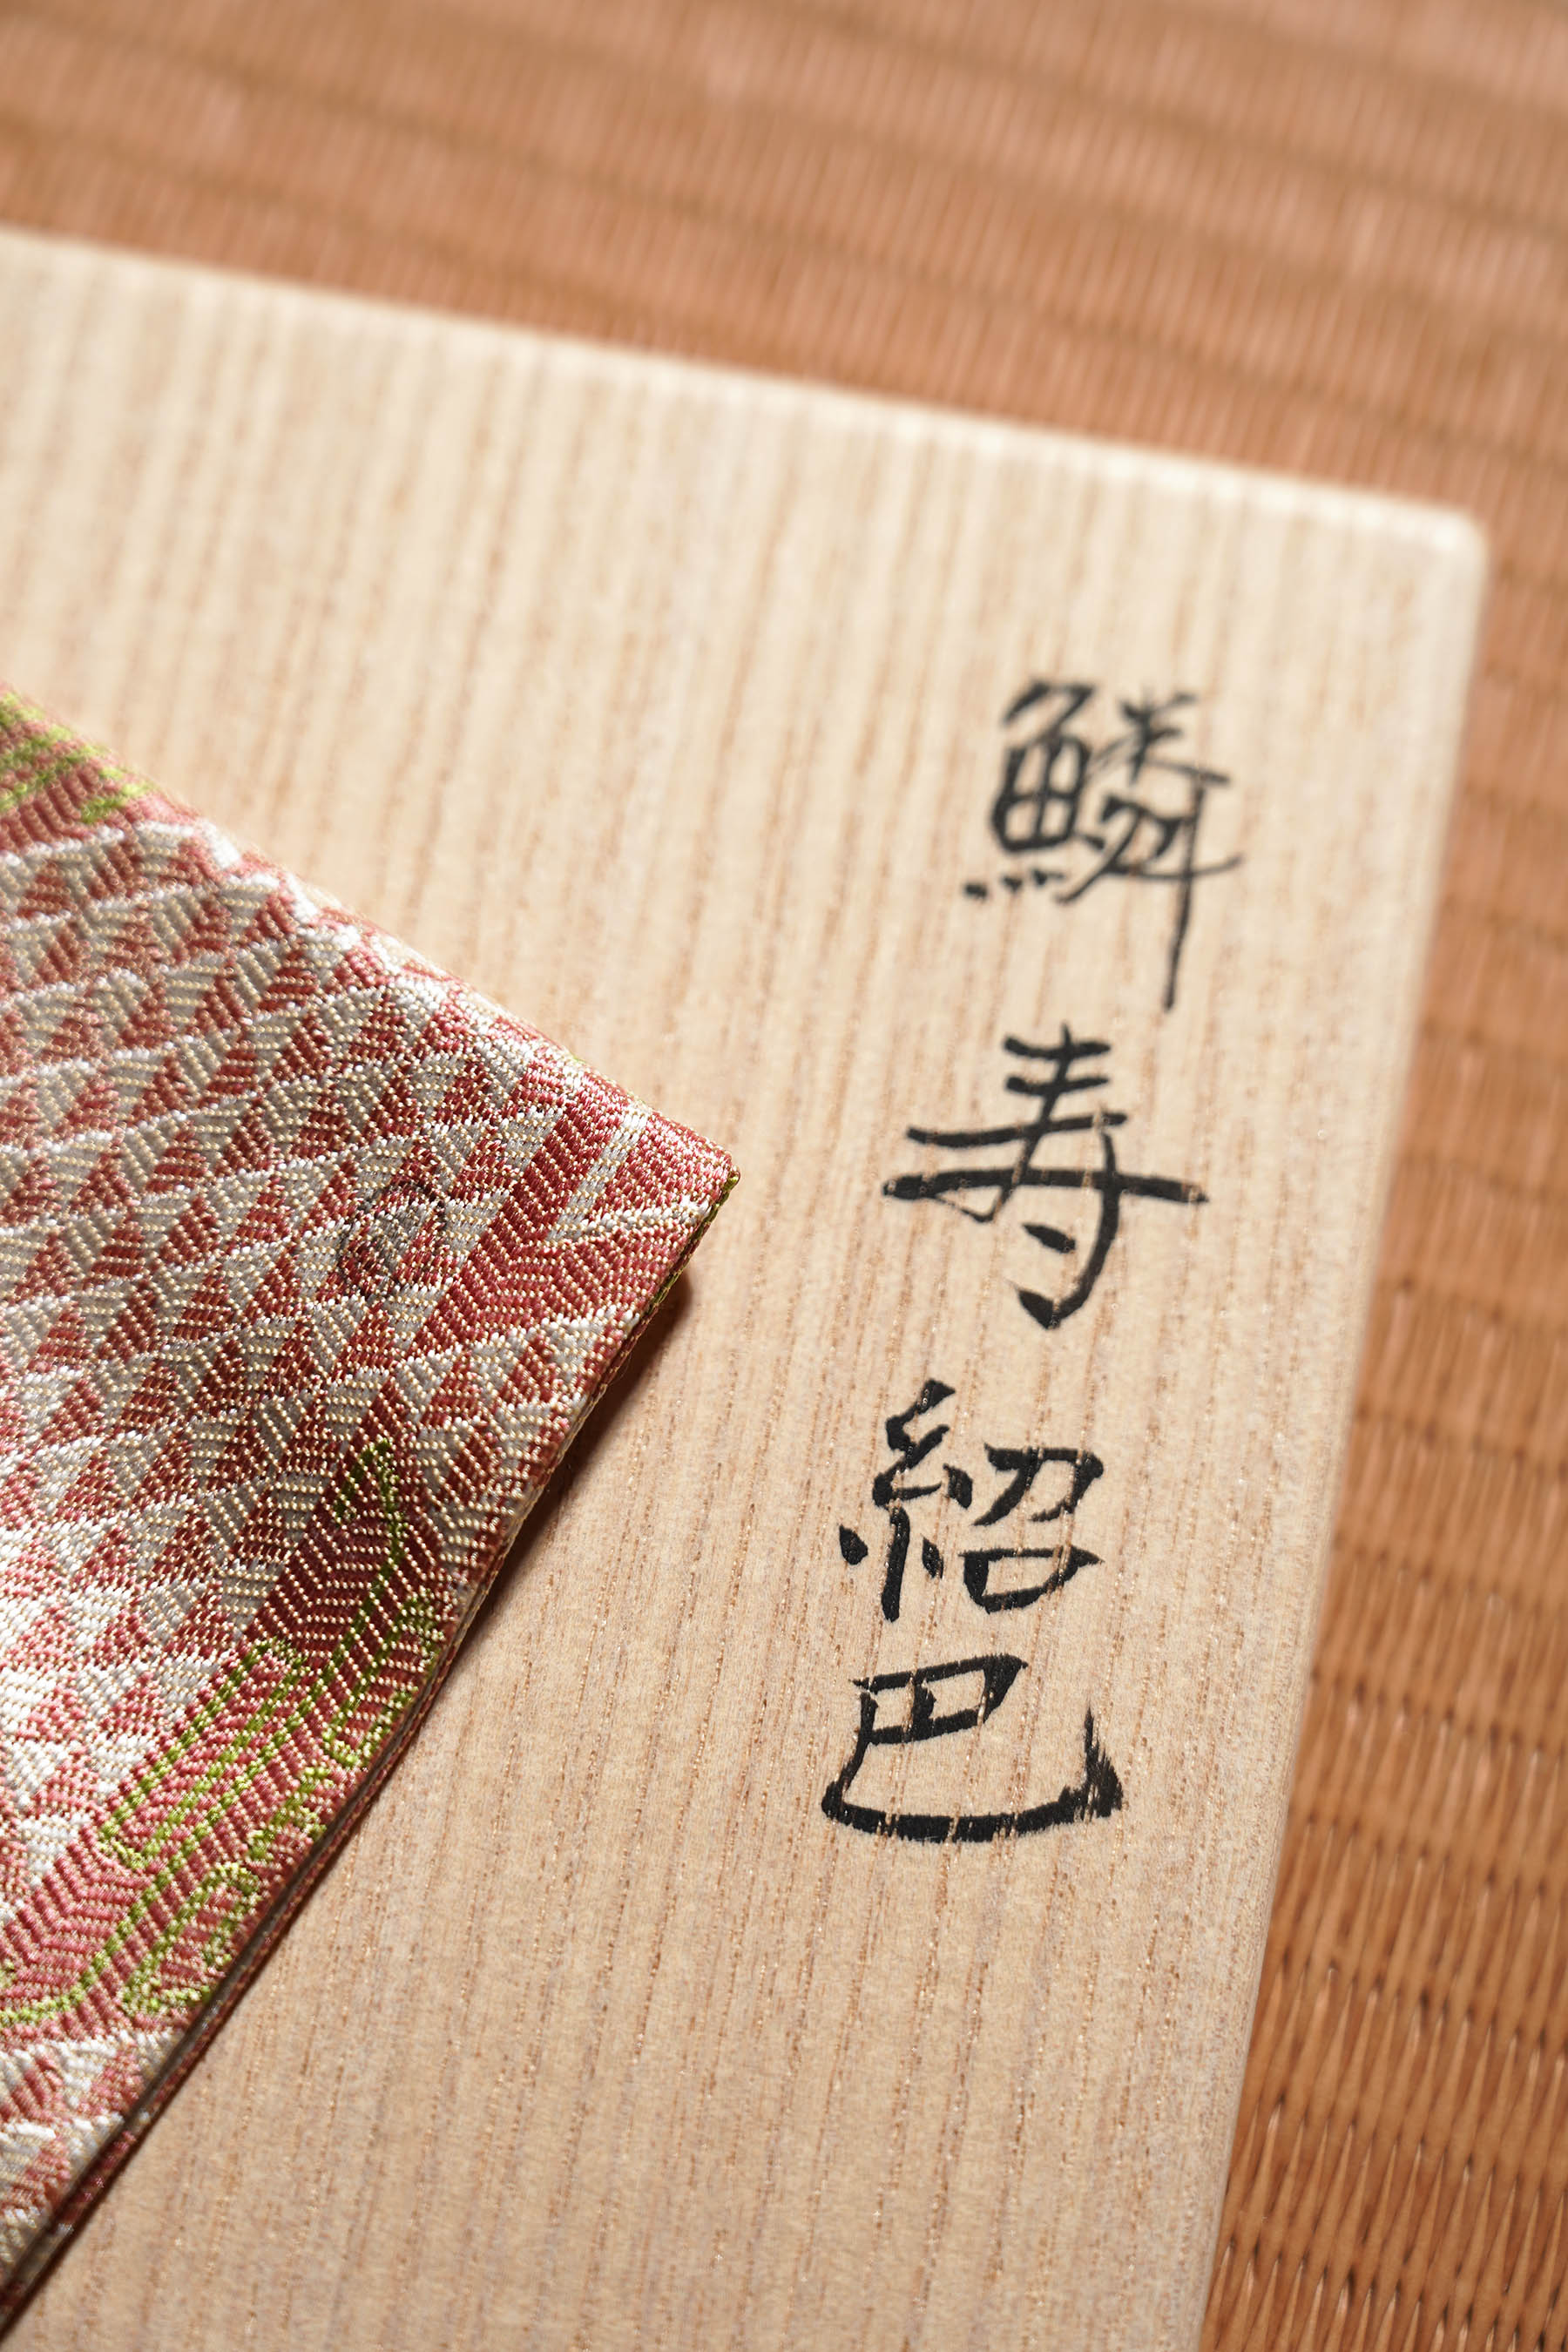 鱗寿紹巴